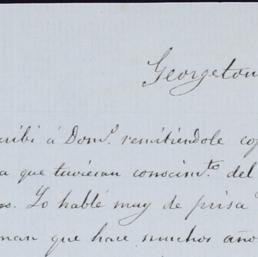 Georgetow
cribi á Domo. remitiéndole cop
a que tuvieran conocimto. del
os. Yo hablé muy de prisa
man que hace muchos año